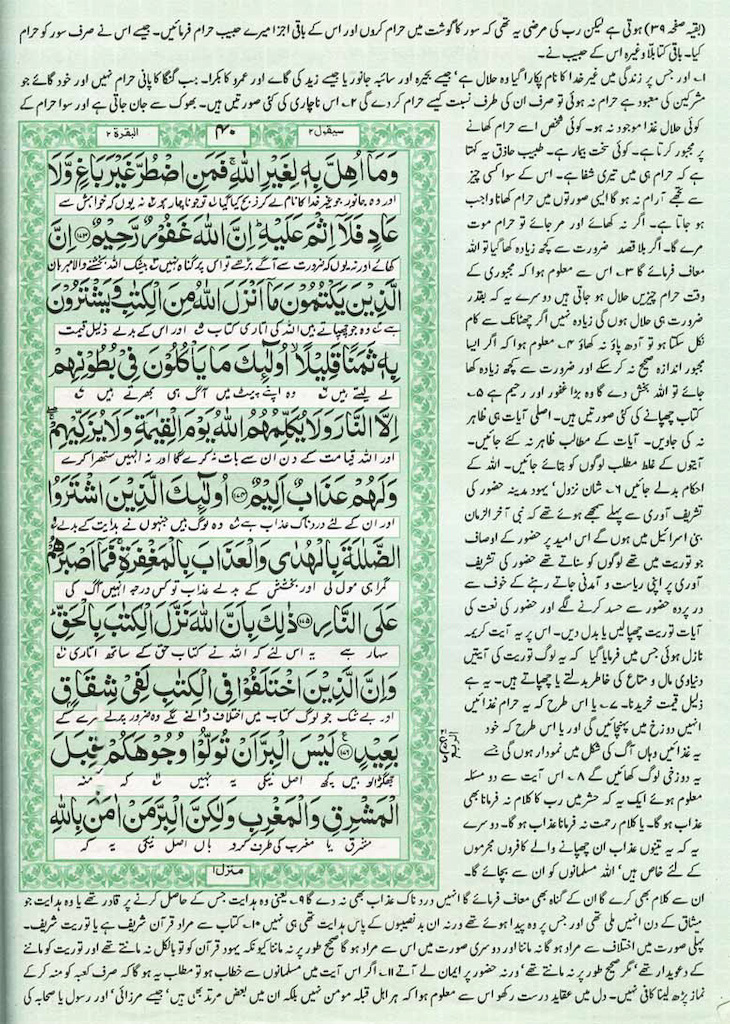 (بقیہ صفحہ ۳۹) ہوتی ہے لیکن رب کی مرضی یہ تھی کہ سور کا گوشت میں حرام کروں اور اس کے باقی اجزا میرے حبیب حرام فرمائیں۔ جیسے اس نے صرف سور کو حرام
کیا۔ باقی کتا بلا وغیرہ اس کے حبیب نے۔
۱۔ اور جس پر زندگی میں غیر خدا کا نام پکارا گیا وہ حلال ہے' جیسے بحیرہ اور سائبہ جانور یا جیسے زید کی گائے اور عمرو کا بکرا۔ جب گنگا کا پانی حرام نہیں اور خود گائے جو
مشرکین کی معبود ہے حرام نہ ہوئی تو صرف ان کی طرف نسبت کیسے حرام کر دے گی ۲۔ اس ناچاری کی کئی صورتیں ہیں۔ بھوک سے جان جاتی ہے اور سوا حرام کے
کوئی حلال غذا موجود نہ ہو۔ کوئی شخص اسے حرام کھانے
پر مجبور کرتا ہے۔ کوئی سخت بیمار ہے۔ طبیب حاذق یہ کہتا
ہے کہ حرام ہی میں تیری شفا ہے۔ اس کے سوا کسی چیز
سے تجھے آرام نہ ہو گا ایسی صورتوں میں حرام کھانا واجب
ہو جاتا ہے۔ اگر نہ کھائے اور مر جائے تو حرام موت
مرے گا۔ اگر بلا قصد ضرورت سے کچھ زیادہ کھا گیا تو اللہ
معاف فرمائے گا ۳۔ اس سے معلوم ہوا کہ مجبوری کے
وقت حرام چیزیں حلال ہو جاتی ہیں دوسرے یہ کہ بقدر
ضرورت ہی حلال ہوں گی زیادہ نہیں اگر چھٹانک سے کام
نکل سکتا ہو تو آدھ پاؤ نہ کھاؤ ۴۔ معلوم ہوا کہ اگر ایسا
مجبور اندازہ صحیح نہ کر سکے اور ضرورت سے کچھ زیادہ کھا
جائے تو اللہ بخش دے گا وہ بڑا غفور اور رحیم ہے ۵۔
کتاب چھپانے کی کئی صورتیں ہیں۔ اصلی آیات ہی ظاہر
نہ کی جاویں۔ آیات کے مطالب ظاہر نہ کئے جائیں۔
آیتوں کے غلط مطلب لوگوں کو بتائے جائیں۔ اللہ کے
احکام بدلے جائیں ۶۔ شان نزول' یہود مدینہ حضور کی
تشریف آوری سے پہلے سمجھے ہوئے تھے کہ نبی آخر الزمان
بنی اسرائیل میں ہوں گے اس امید پر حضور کے اوصاف
جو توریت میں تھے لوگوں کو سناتے تھے حضور کی تشریف
آوری پر اپنی ریاست و آمدنی جاتے رہنے کے خوف سے
در پردہ حضور سے حسد کرنے لگے اور حضور کی نعت کی
آیات توریت چھپالیں یا بدل دیں۔ اس پر یہ آیت کریمہ
نازل ہوئی جس میں فرمایا گیا کہ یہ لوگ توریت کی آیتیں
دنیاوی مال و متاع کی خاطر بدلتے یا چھپاتے ہیں۔ یہ ہے
ذلیل قیمت خریدنا۔ ۷۔ یا اس طرح کہ یہ حرام غذائیں
انہیں دوزخ میں پہنچائیں گی اور یا اس طرح کہ خود
یہ غذائیں وہاں آگ کی شکل میں نمودار ہوں گی جسے
یہ دوزخی لوگ کھائیں گے ۸۔ اس آیت سے دو مسئلہ
معلوم ہوئے ایک یہ کہ حشر میں رب کا کلام نہ فرمانا بھی
عذاب ہو گا۔ یا کلام رحمت نہ فرمانا عذاب ہو گا۔ دوسرے
یہ کہ یہ تینوں عذاب ان چھپانے والے کافروں مجرموں
کے لئے خاص ہیں' اللہ مسلمانوں کو ان سے بچائے گا۔
سیقول ۲
۴۰
البقرۃ ۲
وَمَآ اُهِلَّ بِهٖ لِغَيْرِ اللّٰهِ ۚ فَمَنِ اضْطُرَّ غَيْرَ بَاغٍ وَّلَا
اور وہ جانور جو غیر خدا کا نام لے کر ذبح کیا گیا لہ تو جو ناچار ہو نہ یوں کہ خواہش سے
عَادٍ فَلَآ اِثْمَ عَلَيْهِ ؕ اِنَّ اللّٰهَ غَفُوْرٌ رَّحِيْمٌ ﴿۱۷۳﴾ اِنَّ
کھائے اور نہ یوں کہ ضرورت سے آگے بڑھے تو اس پر گناہ نہیں بیشک اللہ بخشنے والا مہربان
الَّذِيْنَ يَكْتُمُوْنَ مَآ اَنْزَلَ اللّٰهُ مِنَ الْكِتٰبِ وَيَشْتَرُوْنَ
ہے وہ جو چھپاتے ہیں اللہ کی اتاری کتاب اور اس کے بدلے ذلیل قیمت
بِهٖ ثَمَنًا قَلِيْلًا ۙ اُولٰٓئِكَ مَا يَاْكُلُوْنَ فِيْ بُطُوْنِهِمْ
لے لیتے ہیں وہ اپنے پیٹ میں آگ ہی بھرتے ہیں
اِلَّا النَّارَ وَلَا يُكَلِّمُهُمُ اللّٰهُ يَوْمَ الْقِيٰمَةِ وَلَا يُزَكِّيْهِمْ
اور اللہ قیامت کے دن ان سے بات نہ کرے گا اور نہ انہیں ستھرا کرے
وَلَهُمْ عَذَابٌ اَلِيْمٌ ﴿۱۷۴﴾ اُولٰٓئِكَ الَّذِيْنَ اشْتَرَوُا
اور ان کے لئے دردناک عذاب ہے وہ لوگ ہیں جنہوں نے ہدایت کے بدلے
الضَّلٰلَةَ بِالْهُدٰى وَالْعَذَابَ بِالْمَغْفِرَةِ ۚ فَمَآ اَصْبَرَهُمْ
گمراہی مول لی اور بخشش کے بدلے عذاب تو کس درجہ انہیں آگ کی
عَلَى النَّارِ ﴿۱۷۵﴾ ذٰلِكَ بِاَنَّ اللّٰهَ نَزَّلَ الْكِتٰبَ بِالْحَقِّ ؕ
سہار ہے یہ اس لئے کہ اللہ نے کتاب حق کے ساتھ اتاری
وَاِنَّ الَّذِيْنَ اخْتَلَفُوْا فِي الْكِتٰبِ لَفِيْ شِقَاقٍۭ
اور بے شک جو لوگ کتاب میں اختلاف ڈالنے لگے وہ ضرور پرلے سرے کے
بَعِيْدٍ ﴿۱۷۶﴾ لَيْسَ الْبِرَّ اَنْ تُوَلُّوْا وُجُوْهَكُمْ قِبَلَ
جھگڑالو ہیں کچھ اصل نیکی یہ نہیں کہ منہ
الْمَشْرِقِ وَالْمَغْرِبِ وَلٰكِنَّ الْبِرَّ مَنْ اٰمَنَ بِاللّٰهِ
مشرق یا مغرب کی طرف کرو ہاں اصل نیکی یہ کہ
منزل ۱
الربع
ان سے کلام بھی کرے گا ان کے گناہ بھی معاف فرمائے گا انہیں دردناک عذاب بھی نہ دے گا ۹۔ یعنی وہ ہدایت جس کے حاصل کرنے پر قادر تھے یا وہ ہدایت جو
میثاق کے دن انہیں ملی تھی اور جس پر وہ پیدا ہوئے تھے ورنہ ان بدنصیبوں کے پاس ہدایت تھی ہی نہیں ۱۰۔ کتاب سے مراد قرآن شریف ہے یا توریت شریف۔
پہلی صورت میں اختلاف سے مراد ہو گا نہ ماننا اور دوسری صورت میں اس سے مراد ہو گا صحیح طور پر نہ ماننا کیونکہ یہود قرآن کو تو بالکل نہ مانتے تھے اور توریت کو ماننے
کے دعویدار تھے' مگر صحیح طور پر نہ مانتے تھے' ورنہ حضور پر ایمان لے آتے ۱۱۔ اگر اس آیت میں مسلمانوں سے خطاب ہو تو مطلب یہ ہو گا کہ صرف کعبہ کو منہ کر کے
نماز پڑھ لینا کافی نہیں۔ دل میں عقاید درست رکھو اس سے معلوم ہوا کہ ہر اہل قبلہ مومن نہیں بلکہ ان میں بعض مرتد بھی ہیں' جیسے مرزائی' اور رسول یا صحابہ کی